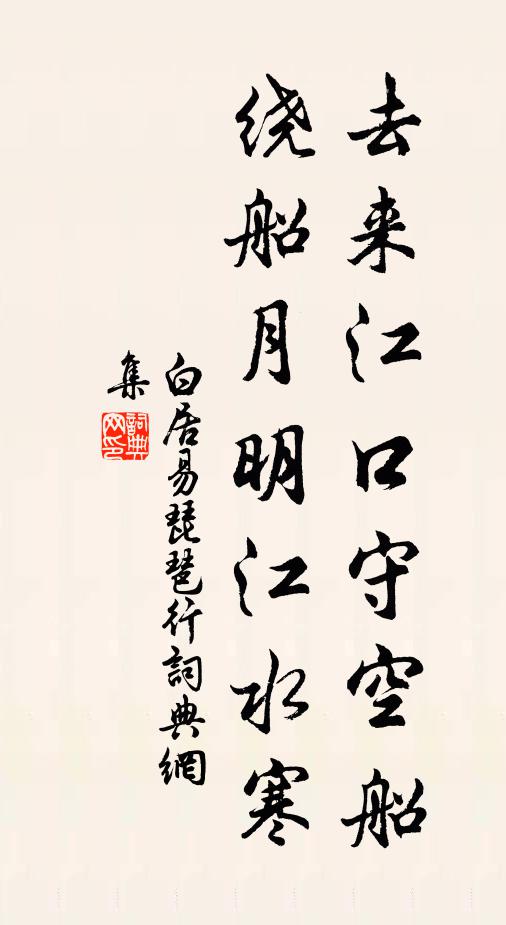 去来江口守空船
绕船月明江水寒
白居易琵琶行詞典網
集
詞典
网印